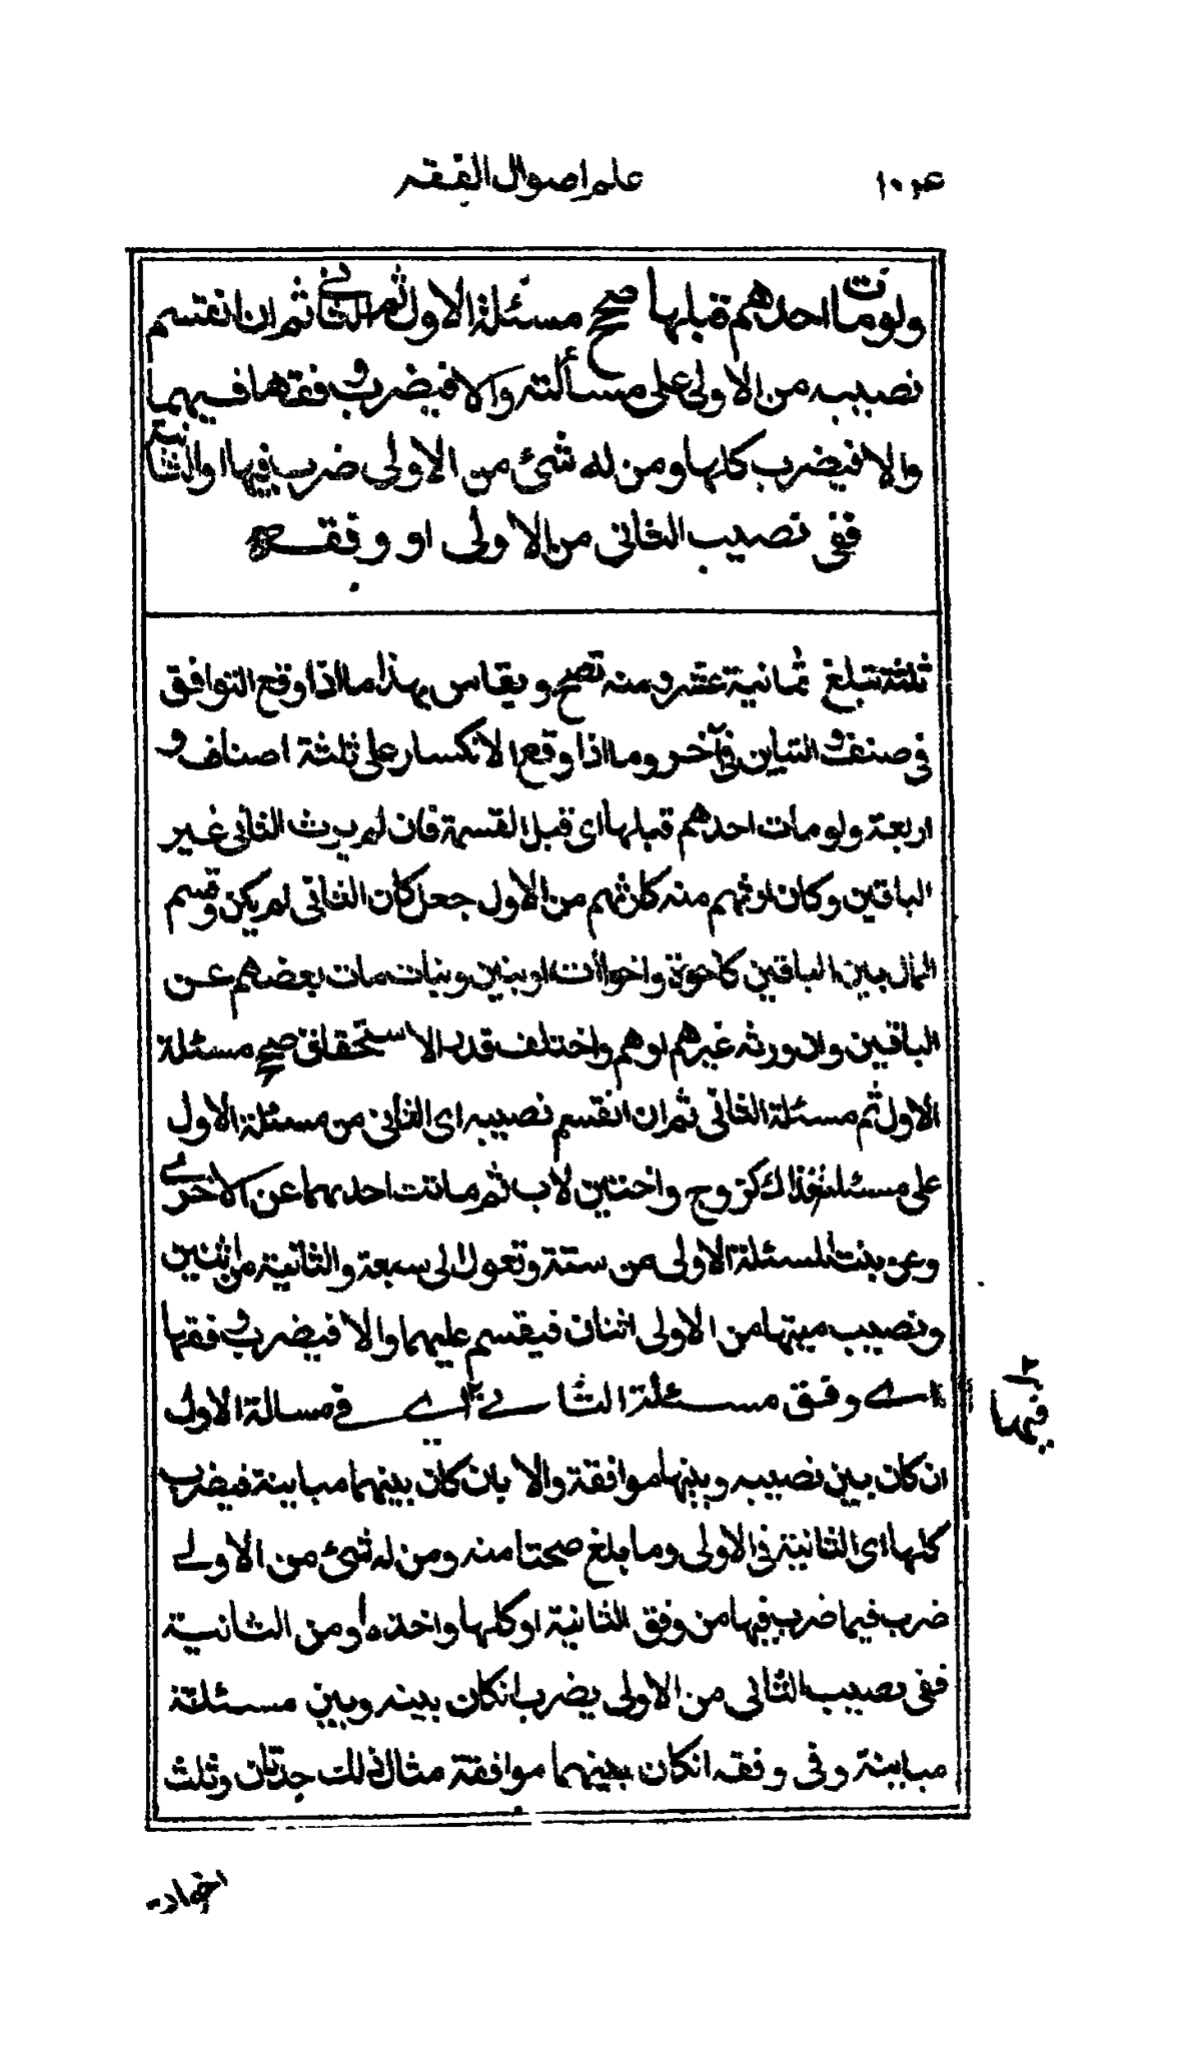 علم اصوال الفقه
ولومات احدهم قبلها صحح مسئلة الاول ثم الثاني ثم ان انقسم
نصيبه من الاولى على مسألته والا فيضرب وفقها فيهما
والا فيضرب كلها ومن له شئ من الاولى ضرب فيها او الثانية
ففى نصيب الثانى من الاولى او وفقه
ثلثة تبلغ ثمانية عشر ومنه تصح ويقاس بهذا ما اذا وقع التوافق
فى صنف والتباين فى آخر وما اذا وقع الانكسار على ثلثة اصناف و
اربعة ولومات احدهم قبلها اى قبل القسمة فان لم يرث الثانى غير
الباقين وكان ارثهم منه كارثهم من الاول جعل كان الثانى لم يكن وقسم
المال بين الباقين كاخوة واخوات او بنين وبنات مات بعضهم عن
الباقين وان ورثه غيرهم او هم واختلف قدر الاستحقاق صحح مسئلة
الاول ثم مسئلة الثانى ثم ان انقسم نصيبه اى الثانى من مسئلة الاول
على مسئلته فذاك كزوج واختين لاب ثم ماتت احدىهما عن الاخرى
وعن بنت المسئلة الاولى من ستة وتعول الى سبعة والثانية من اثنين
ونصيب ميتها من الاولى اثنان فيقسم عليهما والا فيضرب وفقها
اے وفق مسئلة الثانے اے فى مسالة الاول
فيها
ان كان بين نصيبه وبينها موافقة والا بان كان بينهما مباينة فيضرب
كلها اى الثانية فى الاولى وما بلغ صحتا منه ومن له شئ من الاولے
ضرب فيما ضرب فيها من وفق الثانية او كلها واخذه او من الثانية
ففى نصيب الثانى من الاولى يضرب انكان بينه وبين مسئلتة
مباينة وفى وفقه انكان بينهما موافقة مثال ذلك جدتان وثلث
اخوات